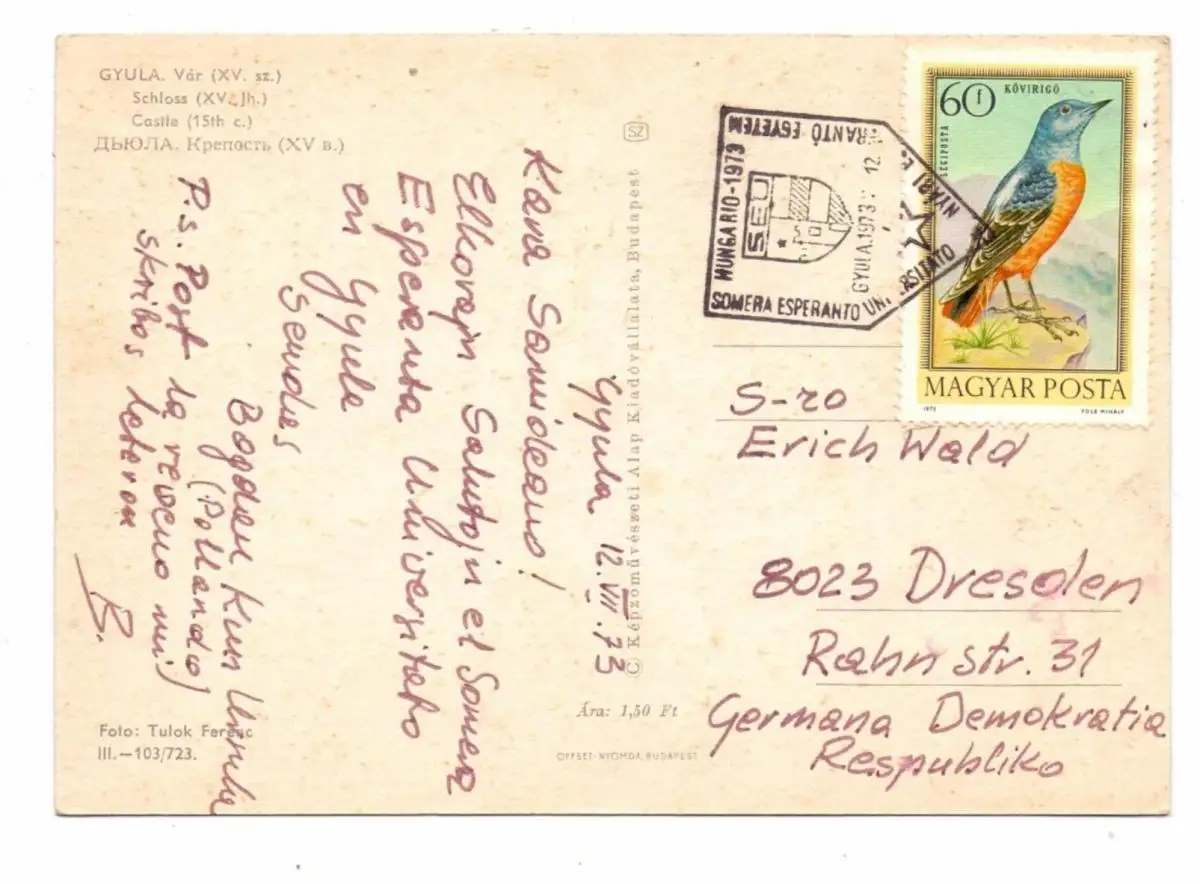 GYULA. Vár (XV. sz.)
Schloss (XV. Jh.)
Castle (15th c.)
ДЬЮЛА. Крепость (XV в.)
Gyula 12.VII.73
Kara Samideano!
Elkorajn Salutojn el Somera
Esperanta Universitato
en Gyula
Sendas
Bogden kun Urszula
(Pollando)
P.s. Post la reveno mi
skribos leteron
B.
Foto: Tulok Ferenc
III.—103/723.
SZ
© Képzőművészeti Alap Kiadóvállalata, Budapest
Ára: 1,50 Ft
OFFSET-NYOMDA, BUDAPEST
HUNGARIO-1973
RANTÓ EGYETEM
NYÁRI E
SEU
GYULA.1973
12.
SOMERA ESPERANTO UN.
RSIJATO
60 f
KÖVIRIGÓ
LÉGIPOSTA
MAGYAR POSTA
1973
S-ro
Erich Wald
8023 Dresden
Rahnstr. 31
Germana Demokratia
Respubliko